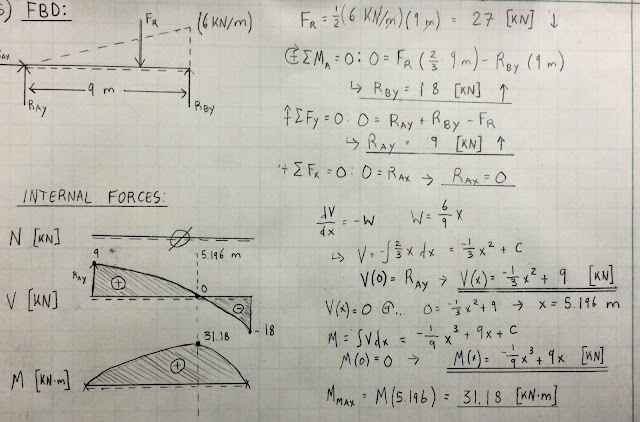 5) FBD:
F_R
(6 KN/m)
R_AX
9 m
R_AY
R_BY
F_R = 1/2 (6 KN/m)(9 m) = 27 [KN] ↓
+ ΣM_A = 0: 0 = F_R (2/3 · 9 m) - R_BY (9 m)
↳ R_BY = 18 [KN] ↑
+↑ ΣF_y = 0: 0 = R_AY + R_BY - F_R
↳ R_AY = 9 [KN] ↑
+ ΣF_x = 0: 0 = R_AX → R_AX = 0
INTERNAL FORCES:
N [KN]
∅
5.196 m
9
R_AY
V [KN]
+
0
-
-18
31.18
M [KN·m]
+
dV/dx = -W W = 6/9 x
↳ V = -∫ 2/3 x dx = -1/3 x² + C
V(0) = R_AY → V(x) = -1/3 x² + 9 [KN]
V(x) = 0 @... 0 = -1/3 x² + 9 → x = 5.196 m
M = ∫Vdx = -1/9 x³ + 9x + C
M(0) = 0 → M(x) = -1/9 x³ + 9x [KN]
M_MAX = M(5.196) = 31.18 [KN·m]